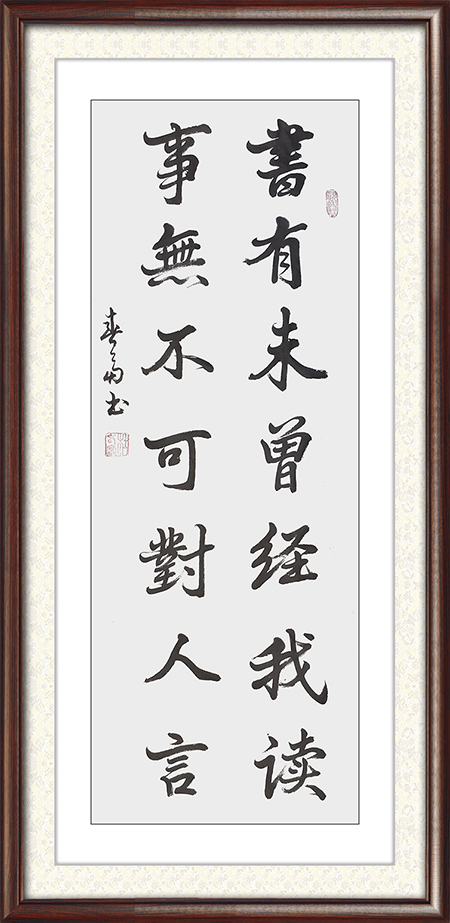 書有未曾经我读
事無不可對人言
書